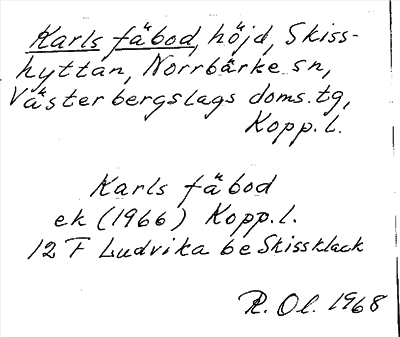 Karls fäbod, höjd, Skiss-
hyttan, Norrbärke sn,
Västerbergslags doms. tg,
Kopp. l.
Karls fäbod
ek (1966) Kopp. l.
12 F Ludvika be Skissklack
R. Ol. 1968